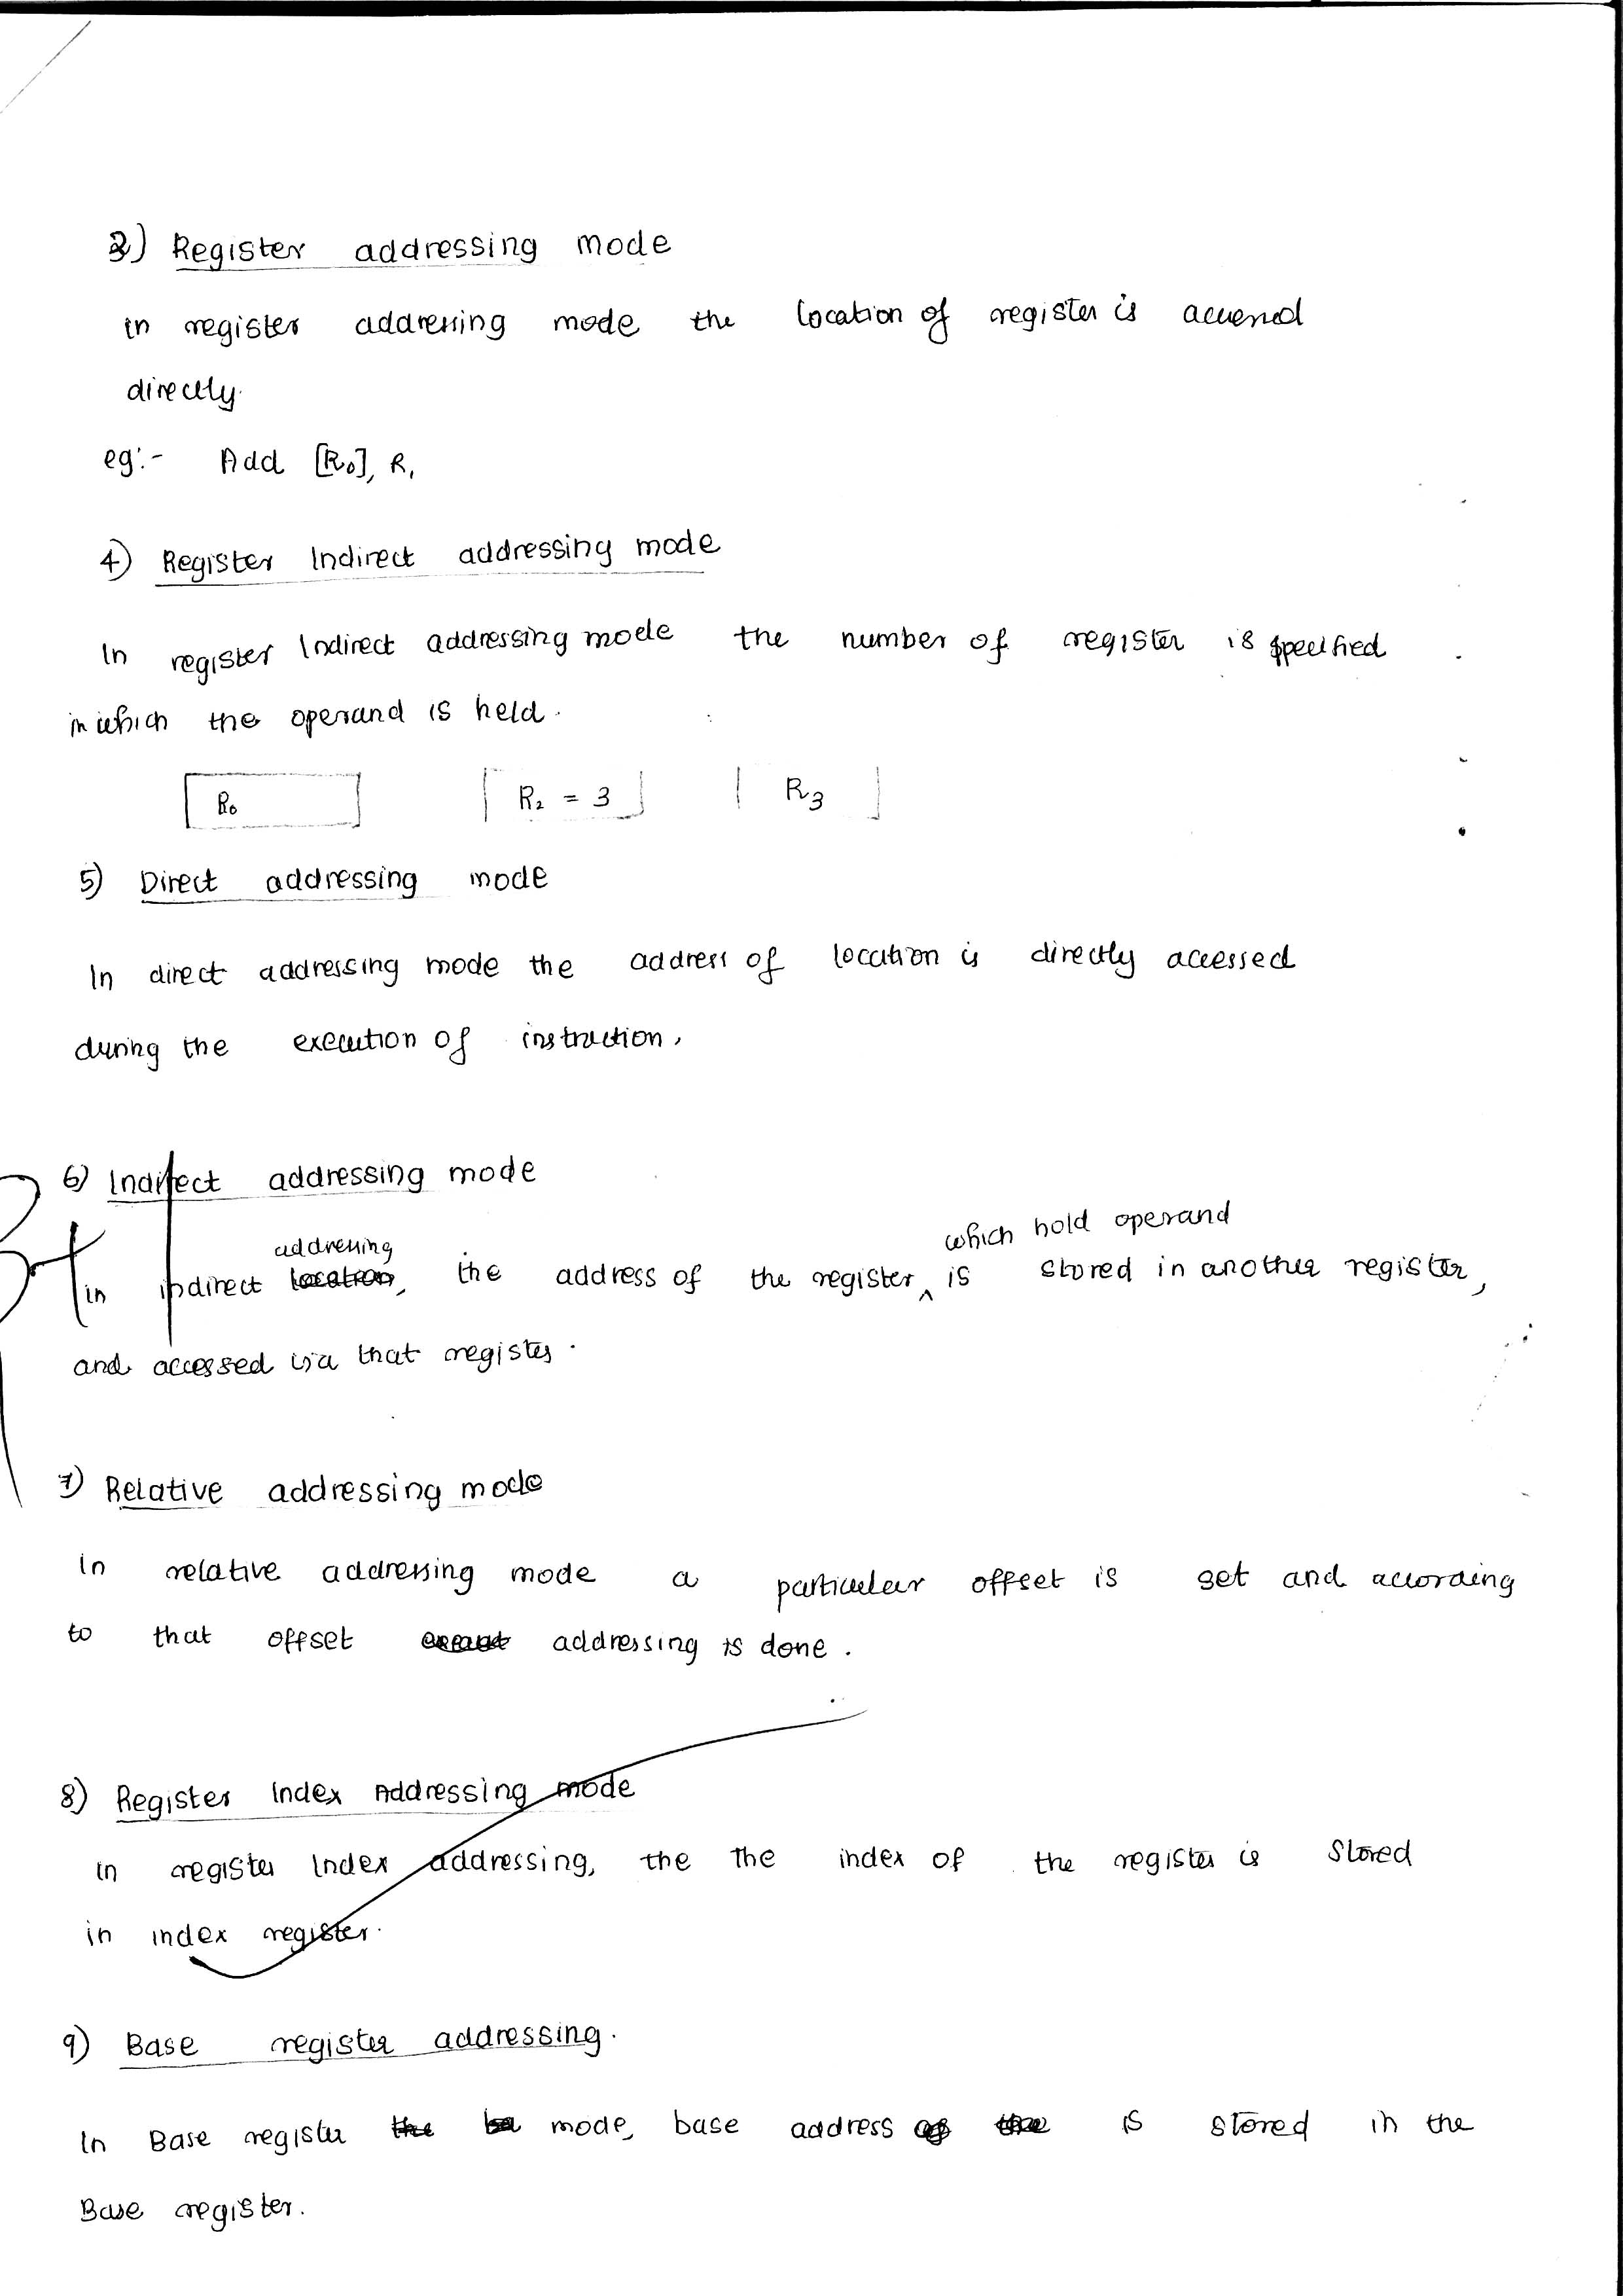 3) Register addressing mode
in register addressing mode the location of register is accessed
directly.
eg:- Add [R0], R1
4) Register Indirect addressing mode
In register Indirect addressing mode the number of register is specified
in which the operand is held.
R0 R2 = 3 R3
5) Direct addressing mode
In direct addressing mode the address of location is directly accessed
during the execution of instruction.
6) Indirect addressing mode
addressing which hold operand
in indirect location, the address of the register ^ is stored in another register,
and accessed via that register.
7) Relative addressing mode
In relative addressing mode a particular offset is set and according
to that offset addressing is done.
8) Register Index Addressing mode
in register Index addressing, the the index of the register is stored
in index register.
9) Base register addressing.
In Base register the ba mode, base address of the is stored in the
Base register.